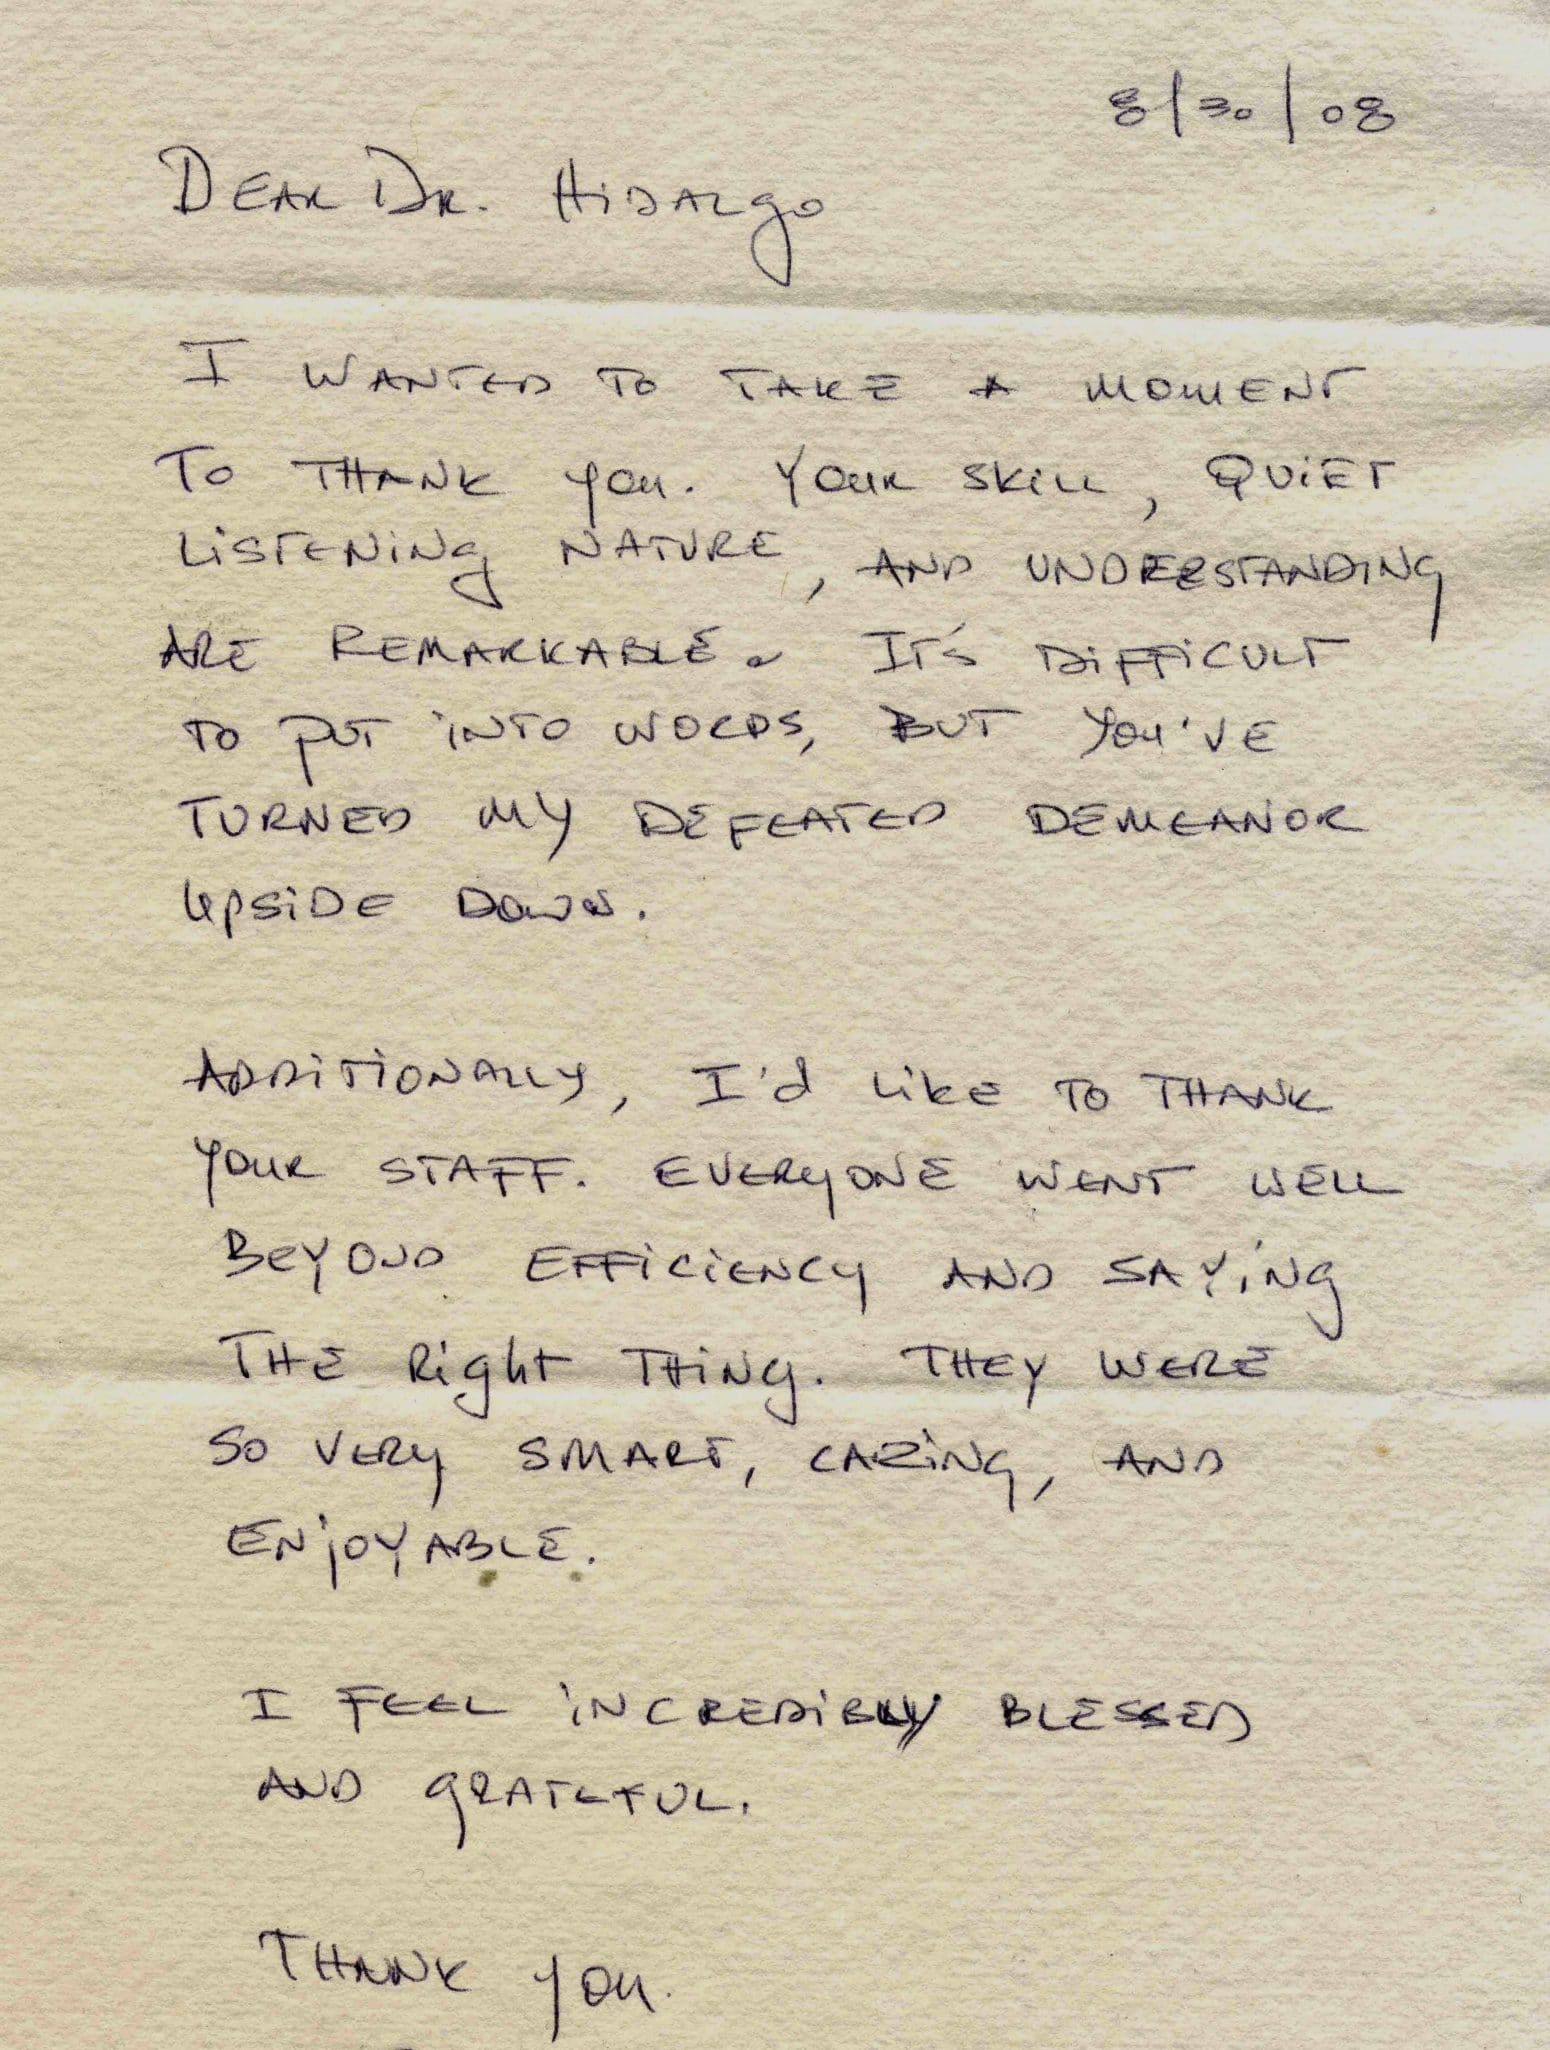 8/30/08
DEAR DR. HIDALgO
I WANTED TO TAKE A MOMENT
TO THANK you. YOUR SKILL, QUIET
LiSTENiNg NATURE, AND UNDERSTANDING
ARE REMARKABLE. IT'S DiFFiCULT
TO PUT iNTO WORDS, BUT YOU'VE
TURNED MY DEFEATED DEMEANOR
UPSiDE DOWN.
ADDiTiONALLY, I'd Like TO THANK
YOUR STAFF. EVERYONE WENT WELL
BEYOND EFFiCiENCY AND SAYiNg
THE Right THiNg. THEY WERE
SO VERY SMART, CARiNg, AND
ENjOYABLE.
I FEEL iNCREDiBLY BLESSED
AND gRATEFUL.
THANK YOU.